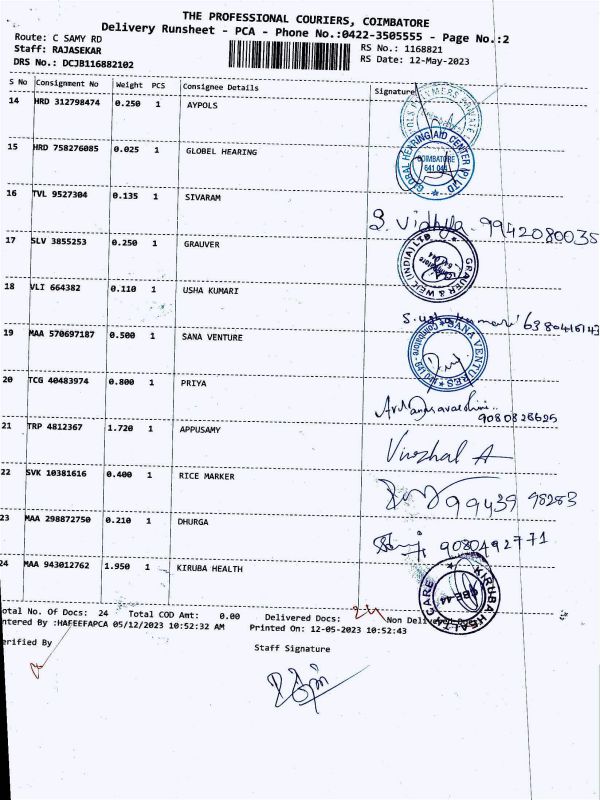 THE PROFESSIONAL COURIERS, COIMBATORE
Delivery Runsheet - PCA - Phone No.:0422-3505555 - Page No.:2
Route: C SAMY RD
RS No.: 1168821
Staff: RAJASEKAR
RS Date: 12-May-2023
DRS No.: DCJB116882102
S No Consignment No Weight PCS Consignee Details Signature
14 HRD 312798474 0.250 1 AYPOLS
15 HRD 758276085 0.025 1 GLOBEL HEARING
GLOBAL HEARING AID CENTER (P) LTD
COIMBATORE
641 044
16 TVL 9527304 0.135 1 SIVARAM
S. Vidhya - 9942080035
17 SLV 3855253 0.250 1 GRAUVER
GRAUER & WEIL (INDIA) LTD
Coimbatore
641 044
18 VLI 664382 0.110 1 USHA KUMARI
19 MAA 570697187 0.500 1 SANA VENTURE
SANA VENTURES
20 TCG 40483974 0.800 1 PRIYA
9080828625
21 TRP 4812367 1.720 1 APPUSAMY
Virzhal A
22 SVK 10381616 0.400 1 RICE MARKER
99439 98283
23 MAA 298872750 0.210 1 DHURGA
9080492771
24 MAA 943012762 1.950 1 KIRUBA HEALTH
KIRUBA HEALTH CARE
CBE-44
otal No. Of Docs: 24 Total COD Amt: 0.00 Delivered Docs: 24 Non Delivered
ntered By :HAFEEFAPCA 05/12/2023 10:52:32 AM Printed On: 12-05-2023 10:52:43
erified By
Staff Signature